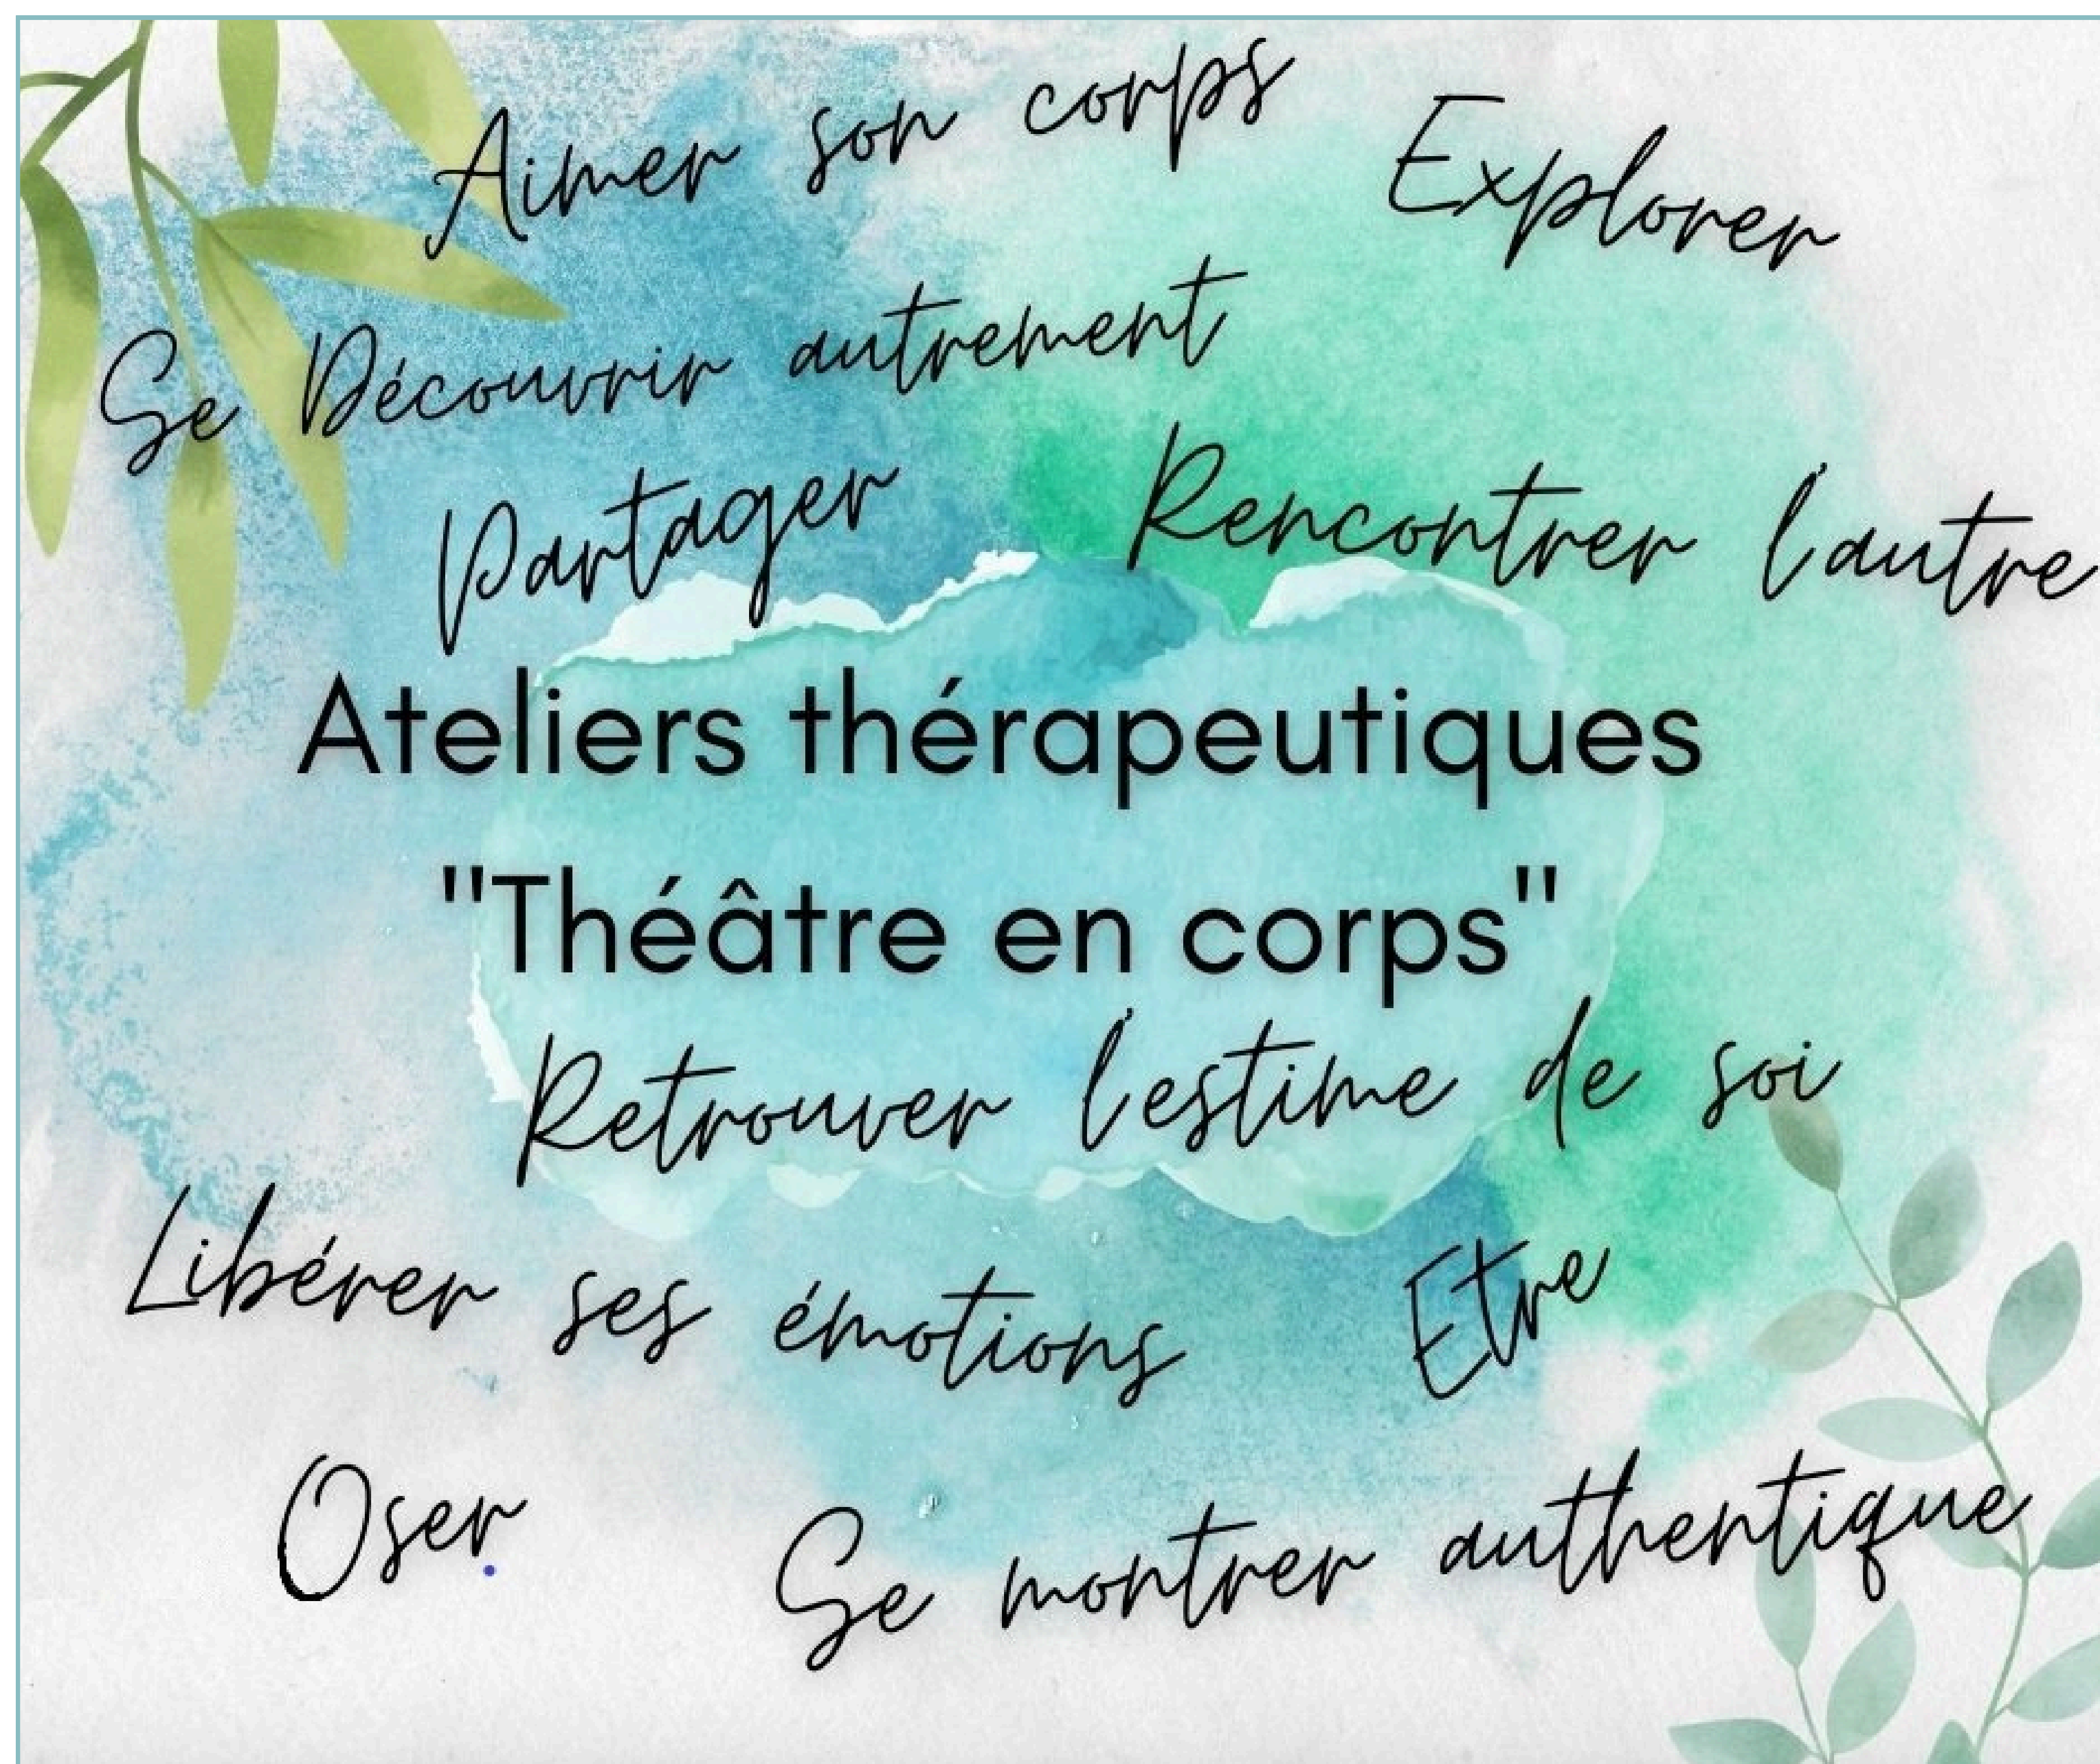 Aimer son corps
Explorer
Se Découvrir autrement
Partager
Rencontrer l'autre
Ateliers thérapeutiques
"Théâtre en corps"
Retrouver l'estime de soi
Libérer ses émotions
Etre
Oser
Se montrer authentique